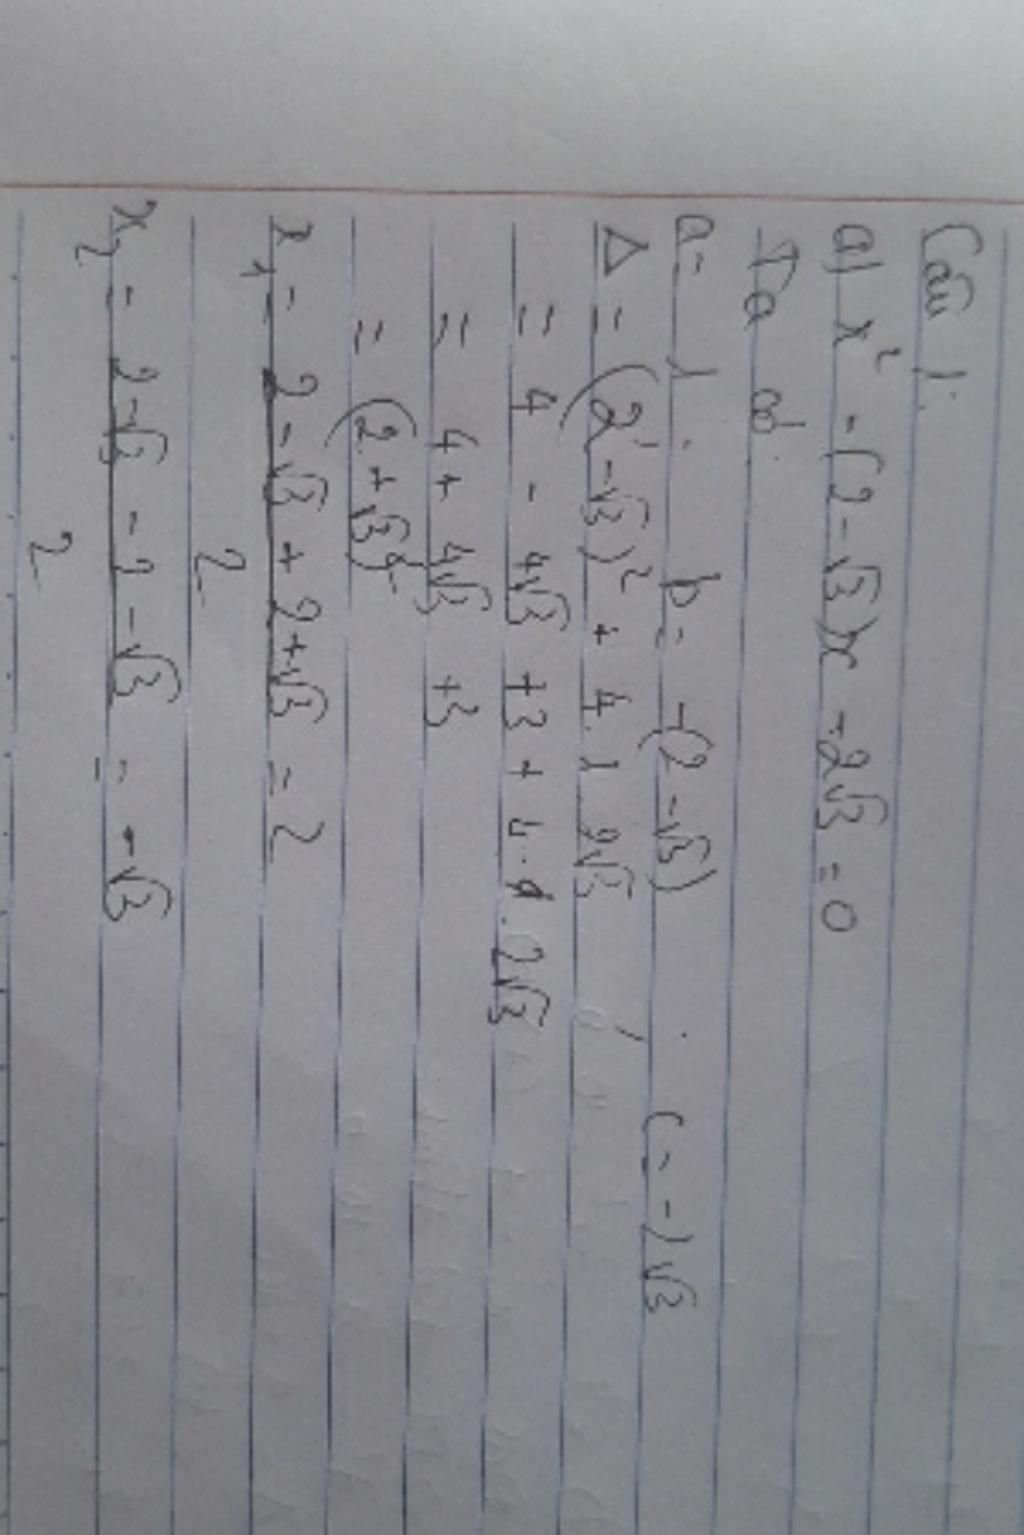 Câu 1:
a) x² - (2 - √3)x - 2√3 = 0
Ta có
a = 1. b = -(2 - √3) c = -2√3
Δ = (2 - √3)² + 4.1.2√3
= 4 - 4√3 + 3 + 4.1.2√3
= 4 + 4√3 + 3
= (2 + √3)²
x₁ = 2 - √3 + 2 + √3 = 2
2
x₂ = 2 - √3 - 2 - √3 = -√3
2